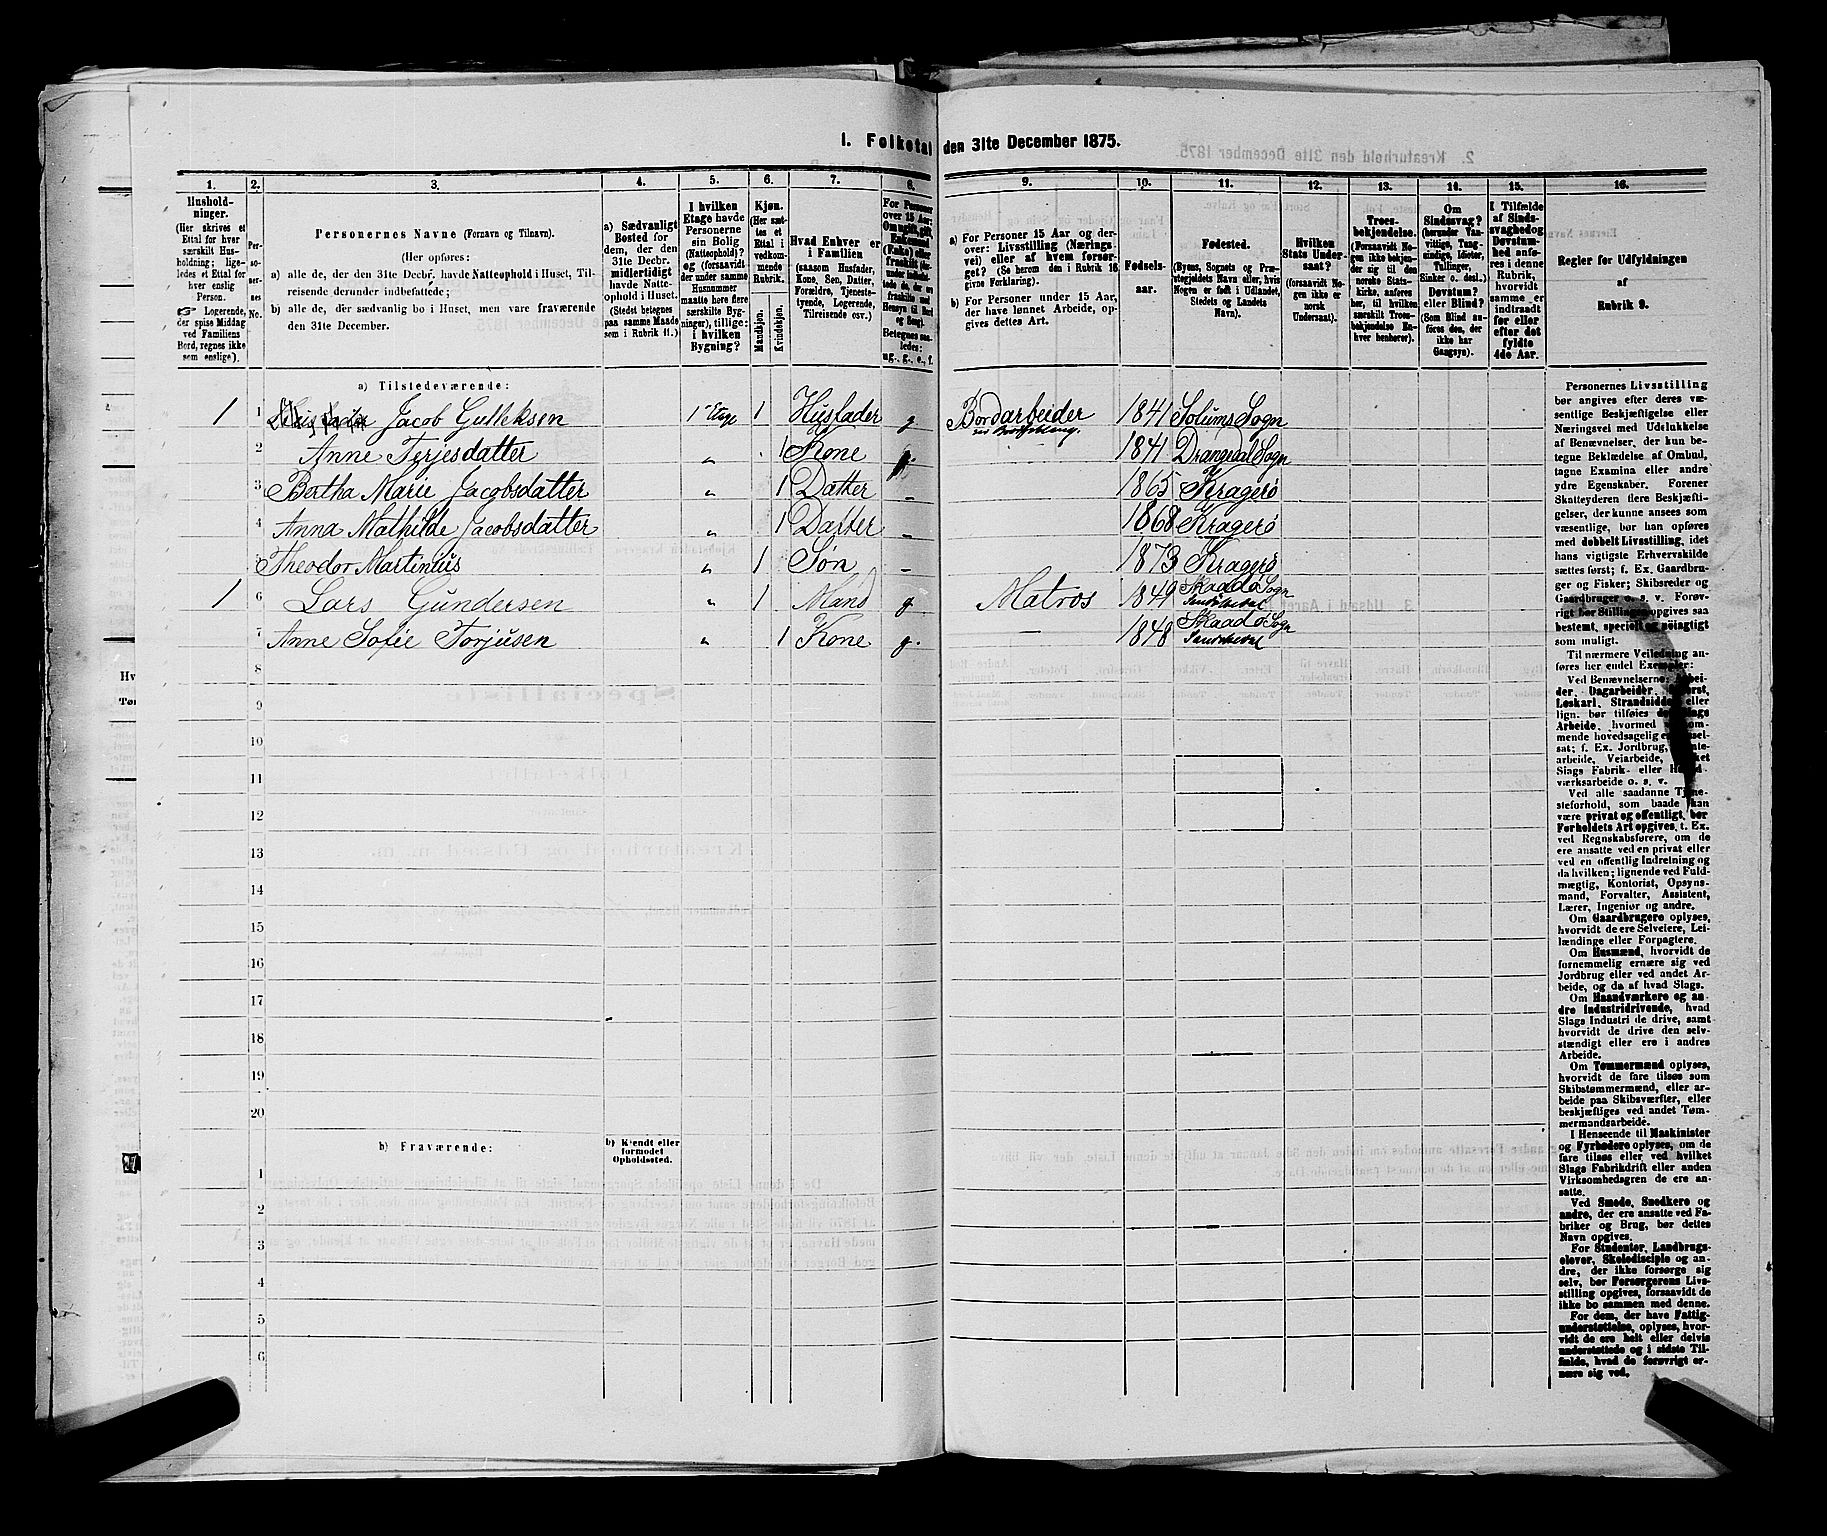 I. Folketal den 31te December 1875.
1. 2. 3. 4. 5. 6. 7. 8. 9. 10. 11. 12. 13. 14. 15. 16.
Husholdninger.
(Her skrives et
Ettal for hver
særskilt Husholdning;
ligeledes et Ettal for
hver enslig
Person.
☞ Logerende,
der spise Middag
ved Familiens
Bord, regnes ikke
som enslige).
Personernes No.
Personernes Navne (Fornavn og Tilnavn).
(Her opføres:
a) alle de, der den 31te Decbr. havde Natteophold i Huset, Tilreisende derunder indbefattede;
b) alle de, der sædvanlig bo i Huset, men vare fraværende
den 31te December.
a) Sædvanligt
Bosted for
dem, der den
31te Decbr.
midlertidigt
havde Natteophold i Huset.
(Stedet betegnes
paa samme Maade
som i Rubrik 11.)
I hvilken
Etage havde
Personerne
sin Bolig
(Natteophold)?
og (forsaavidt
der under samme
Husnummer
maatte høre flere
særskilte Bygninger), tillige:
i hvilken
Bygning?
Kjøn.
(Her sættes et
Ettal i
vedkommende
Rubrik.
Mandkjøn.
Kvindekjøn.
Hvad Enhver er
i Familien
(saasom Husfader,
Kone, Søn, Datter,
Forældre, Tjenestetyende, Logerende,
Tilreisende osv.)
For Personer
over 15 Aar:
Om ugift, gift,
Enkemand
(Enke) eller
fraskilt
Betegnes saaledes:
ug., g., e., f.
a) For Personer 15 Aar og derover: Livsstilling (Næringsvei) eller af hvem forsørget? (Se herom den i Rubrik 16
givne Forklaring).
b) For Personer under 15 Aar,
der have lønnet Arbeide, opgives dettes Art.
Fødselsaar.
Fødested.
(Byens, Sognets og Præstegjeldets Navn eller, hvis
Nogen er født i Udlandet,
Stedets og Landets
Navn).
Hvilken
Stats Undersaat?
(forsaavidt Nogen ikke er
norsk
Undersaat).
Troesbekjendelse.
(Forsaavidt Nogen ikke bekjender sig til den
norske Statskirke, anføres
her, til hvilken
særskilt Troesbekjendelse Enhver henhører).
Om
Sindssvag?
(herunder Vanvittige, Tungsindige, Idioter,
Tullinger,
Sinker o. desl.)
Døvstum?
eller Blind?
(Som Blind anføres den, der
ikke har
Gangsyn).
I Tilfælde
af Sindssvaghed og
Døvstumhed anføres i denne
Rubrik,
hvorvidt
samme er
indtraadt
før eller
efter det
fyldte
4de Aar.
Regler for Udfyldningen
af
Rubrik 9.
a) Tilstedeværende:
1 1 Jacob Gulleksen 1ste Etage 1 Husfader g Bordarbeider 1841 Solums Sogn
2 Anne Terjesdatter „ 1 Kone 1841 Drangedal Sogn
3 Bertha Marie Jacobsdatter „ 1 Datter – 1865 Kragerø
4 Anna Mathilde Jacobsdatter „ 1 Datter – 1868 Kragerø
5 Theodor Martinius „ 1 Søn – 1873 Kragerø
1 6 Lars Gundersen „ 1 Mand g Matros 1849 Skaadø Sogn
Sandøkedal
7 Anne Sofie Torjusen „ 1 Kone g. — 1848 Skaadø Sogn
Sandøkedal
8
9
10
11
12
13
14
15
16
17
18
19
20
b) Fraværende:
b) Kjendt eller
formodet
Opholdssted.
1
2
3
4
5
6
Personernes Livsstilling
bør angives efter deres væsentlige Beskjæftigelse eller
Næringsvei med Udelukkelse
af Benævnelser, der kun betegne Beklædelse af Ombud,
tagne Examina eller andre
ydre Egenskaber. Forener
Skatteyderen flere Beskjæftigelser, der kunne ansees som
væsentlige, bør han opføres
med dobbelt Livsstilling, idet
hans vigtigste Erhvervskilde
sættes først; f. Ex. Gaardbruger og Fisker; Skibsreder og
Gaardbruger o. s. v. Forøvrigt bør Stillingen opgives saa
bestemt, specielt og nøiagtigt
som muligt.
Til nærmere Veiledning anføres her endel Exempler:
Ved Benævnelserne: Arbeider, Dagarbeider, Inderst,
Løskarl, Strandsidder eller
lign. bør tilføies det Slags
Arbeide, hvormed vedkommende hovedsagelig er sysselsat; f. Ex. Jordbrug, Tomtearbeide, Veiarbeide, hvilket
Slags Fabrik- eller Haandværksarbeide o. s. v.
Ved alle saadanne Tjenesteforhold, som baade kan
være privat og offentligt, bør
Forholdets Art opgives, t. Ex.
ved Regnskabsførere, om de
ere ansatte ved en privat eller
ved en offentlig Indretning og
da hvilken; lignende ved Fuldmægtig, Kontorist, Opsynsmand, Forvalter, Assistent,
Lærer, Ingeniør og andre.
Om Gaardbrugere oplyses,
hvorvidt de ere Selveiere, Leilændinge eller Forpagtere.
Om Husmænd, hvorvidt de
fornemmelig ernære sig ved
Jordbrug eller ved andet Arbeide, og da af hvad Slags.
Om Haandværkere og andre Industridrivende, hvad
Slags Industri de drive, samt
hvorvidt de drive den selvstændigt eller ere i andres
Arbeide.
Om Tømmermænd oplyses,
hvorvidt de fare tilsøs som
Skibstømmermænd, eller arbeide paa Skibsværfter, eller
beskjæftiges ved andet Tømmermandsarbeide.
I Henseende til Maskinister
og Fyrbødere oplyses, om de
fare tilsøs eller ved hvilket
Slags Fabrikdrift eller anden
Virksomhedsgren de ere ansatte.
Ved Smede, Snedkere og
andre, der ere ansatte ved Fabriker og Brug, bør dettes
Navn opgives.
For Studenter, Landbrugselever, Skoledisciple og andre, der ikke forsørge sig
selv, bør Forsørgerens Livsstilling opgives, forsaavidt de
ikke bo sammen med denne.
For dem, der have Fattigunderstøttelse, oplyses, hvorvidt de ere helt eller delvis
understøttede og i sidste Tilfælde, hvad de forøvrigt ernære sig ved.